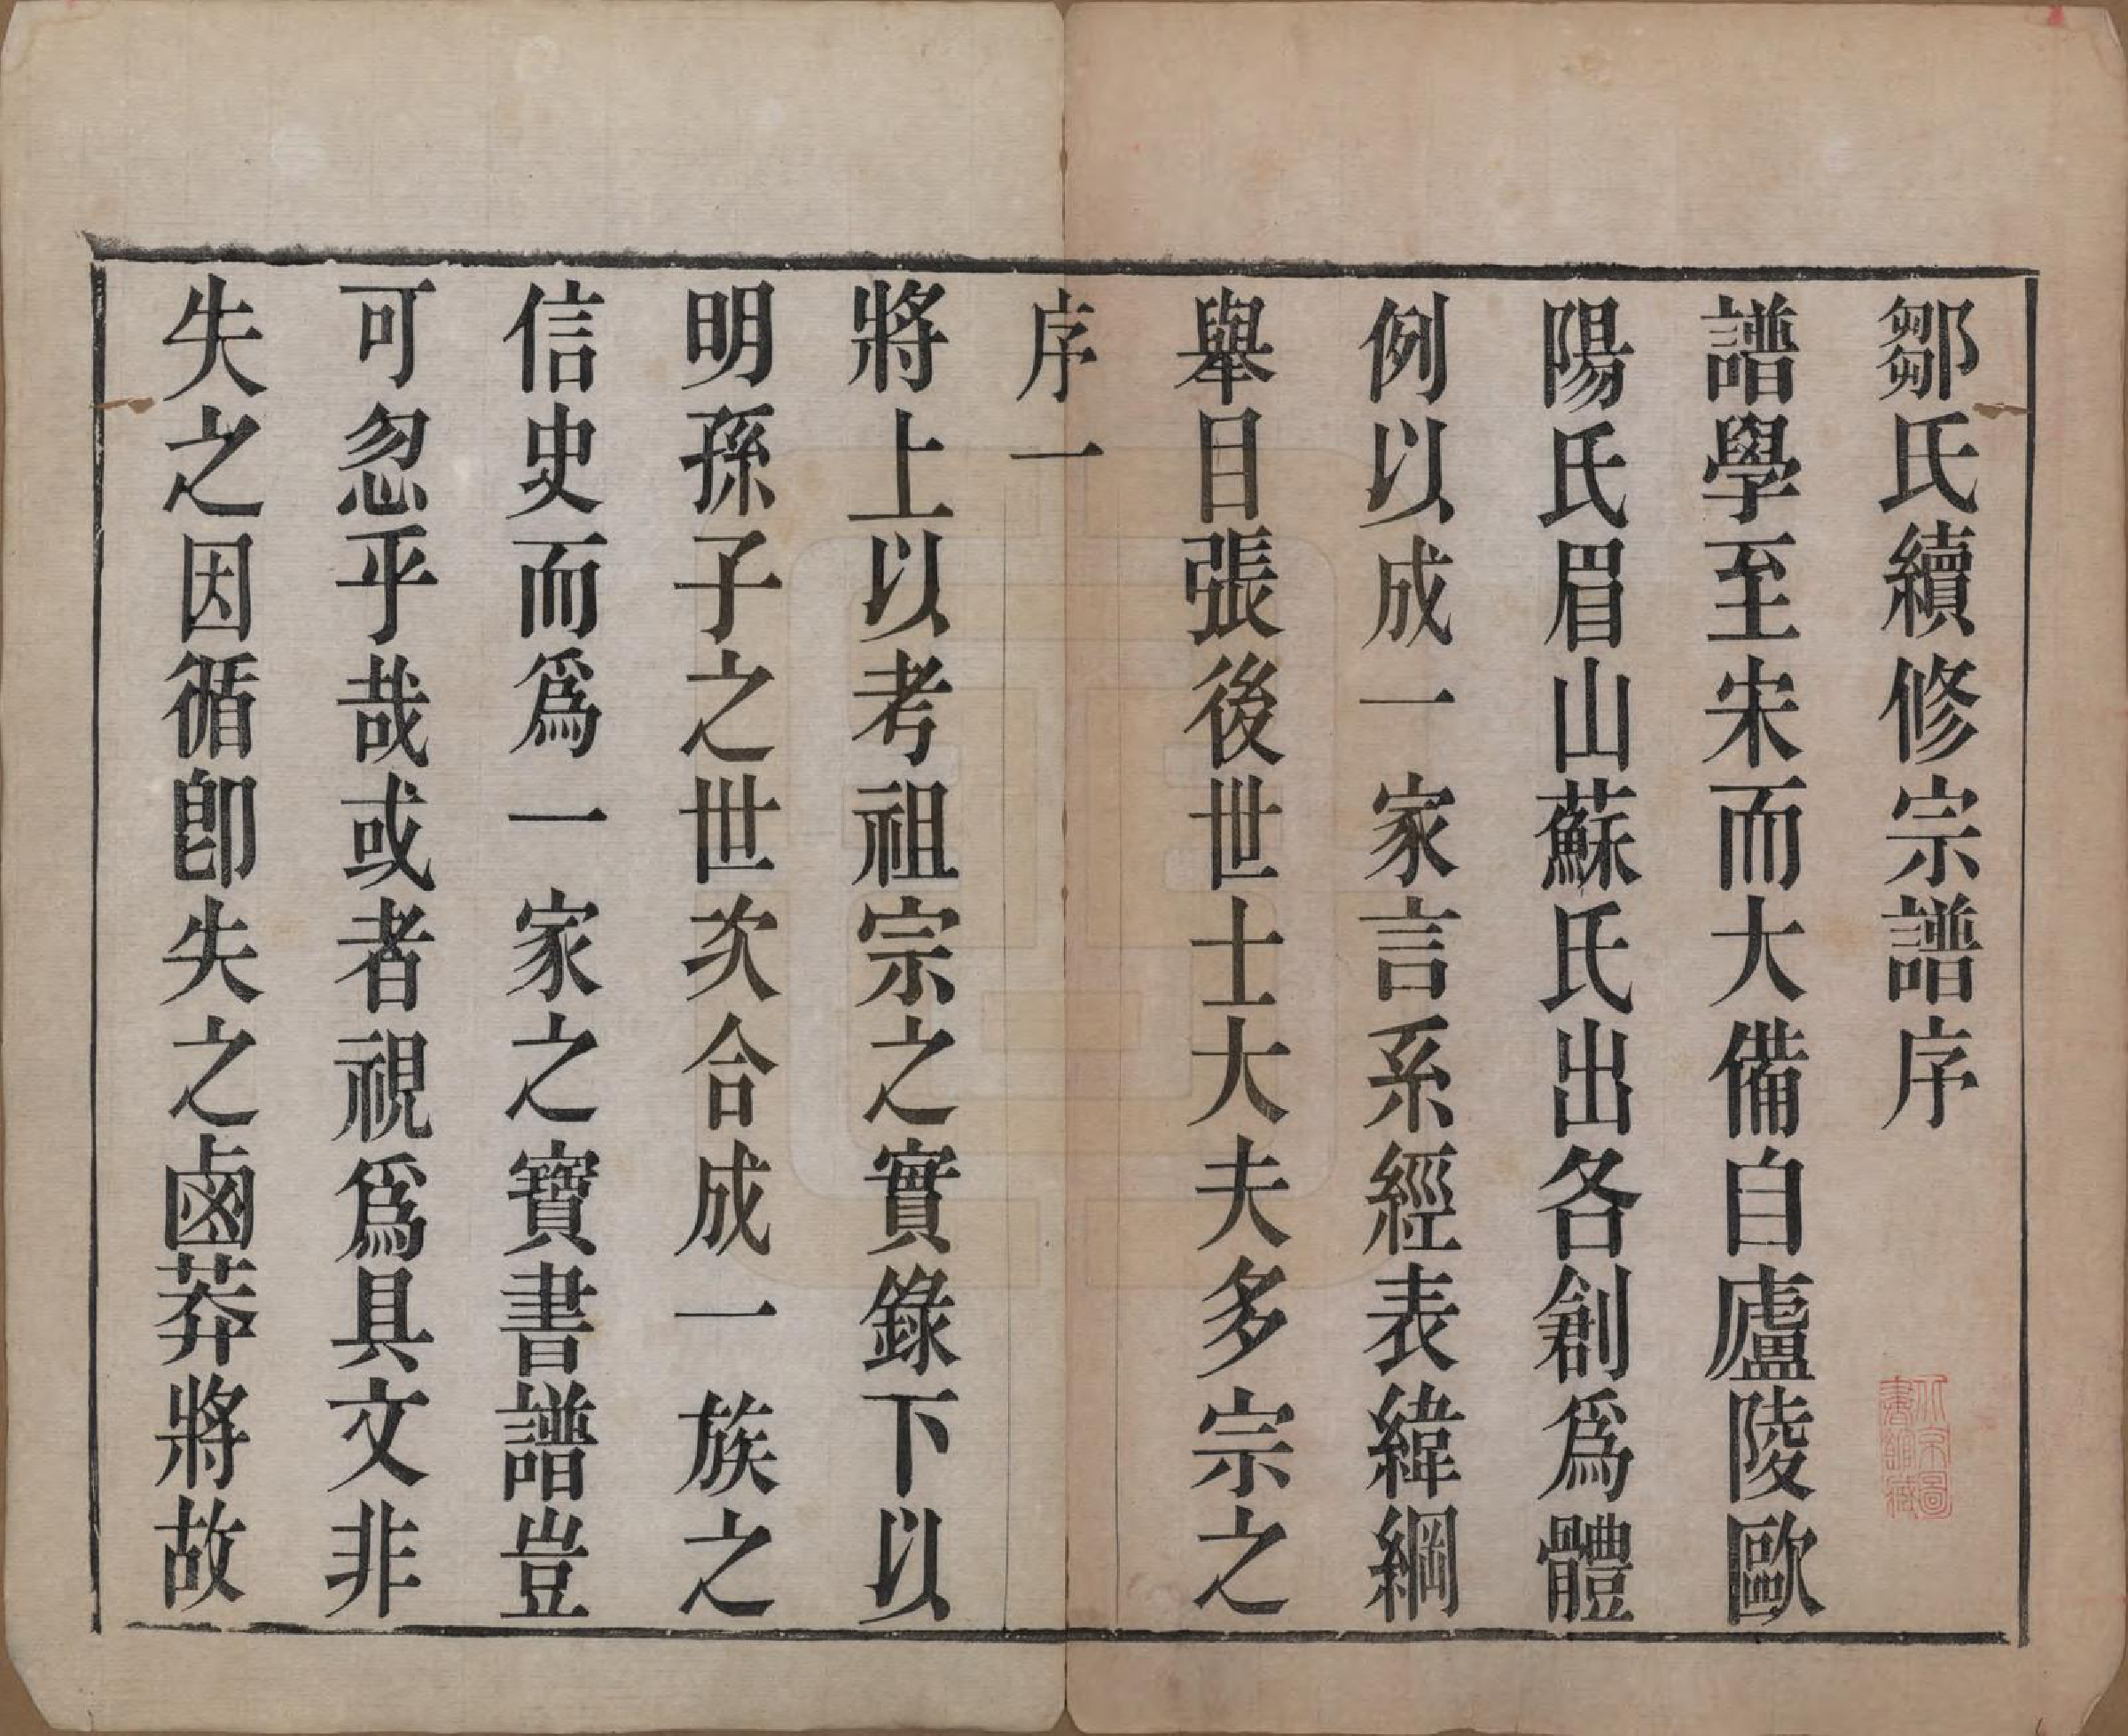 鄒氏續修宗譜序
譜學至宋而大備自廬陵歐
陽氏眉山蘇氏出各創爲體
例以成一家言系經表緯綱
舉目張後世士大夫多宗之
序一
將上以考祖宗之實錄下以
明孫子之世次合成一族之
信史而爲一家之寶書譜豈
可忽乎哉或者視爲具文非
失之因循卽失之鹵莽將故